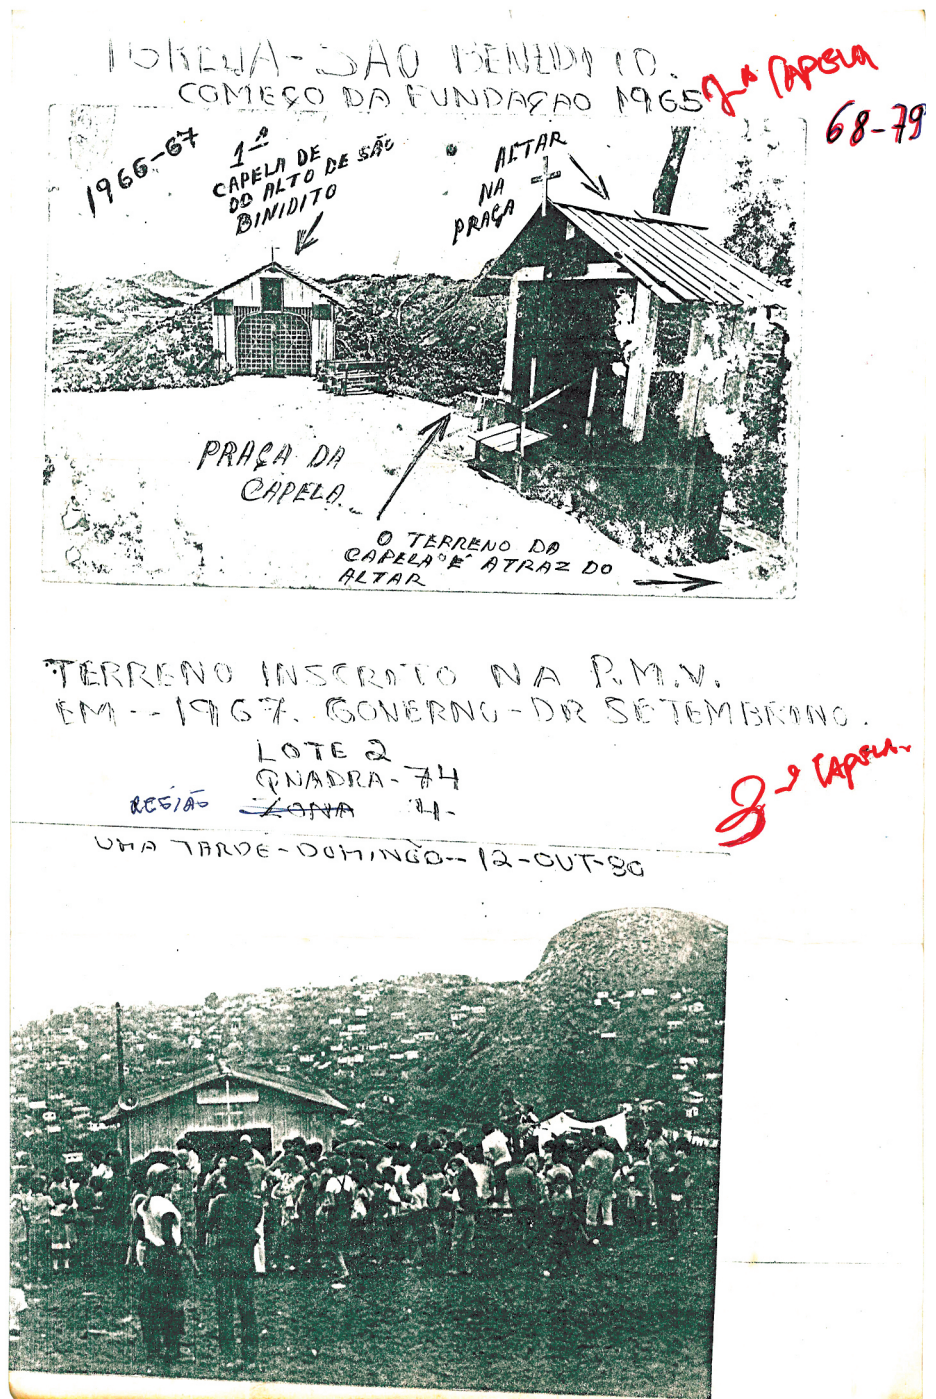 IGREJA - SÃO BENIDITO.
COMEÇO DA FUNDAÇAO 1965
2ª CAPELA
68-79
1966-67
1ª
CAPELA DE
DO ALTO DE SÃO
BINIDITO
ALTAR
NA
PRAÇA
PRAÇA DA
CAPELA
O TERRENO DA
CAPELA É ATRAZ DO
ALTAR
TERRENO INSCRITO NA P.M.V.
EM -- 1967. GOVERNO - DR SETEMBRINO.
LOTE 2
QUADRA - 74
REGIÃO ZONA 4-
3ª CAPELA.
UMA TARDE - DOMINGO -- 12-OUT-80